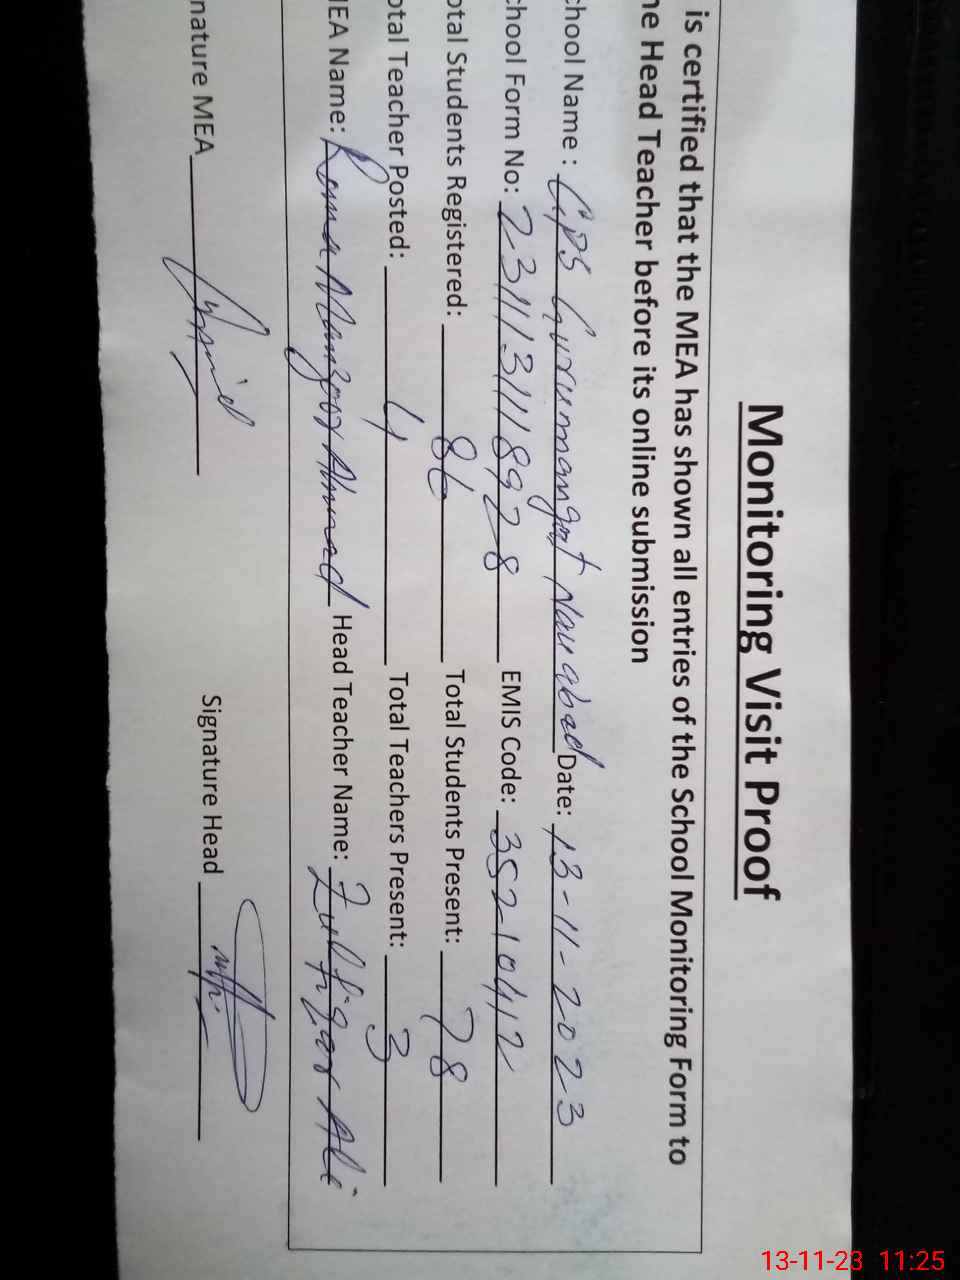 Monitoring Visit Proof
is certified that the MEA has shown all entries of the School Monitoring Form to
he Head Teacher before its online submission
chool Name : GPS Gurumangat Nauabad Date: 13-11-2023
chool Form No: 2311131118928 EMIS Code: 352-10412
otal Students Registered: 86 Total Students Present: 78
otal Teacher Posted: 4 Total Teachers Present: 3
MEA Name: Rana Manzoor Ahmad Head Teacher Name: Zulfiqar Ali
nature MEA Signature Head
13-11-23 11:25